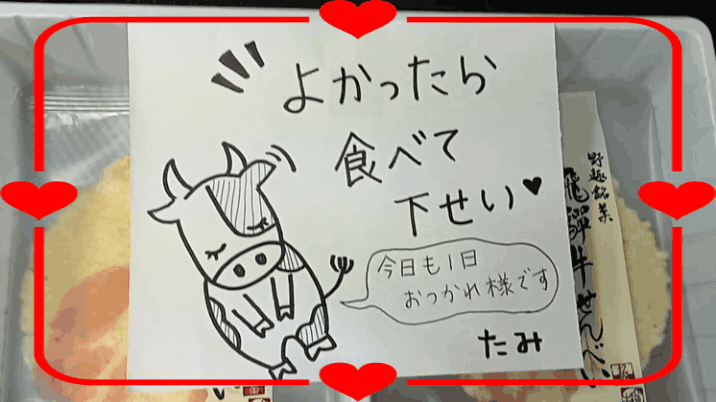 よかったら
食べて
下せい♥
今日も1日
おつかれ様です
たみ
野趣銘菓
飛騨牛せんべい
い